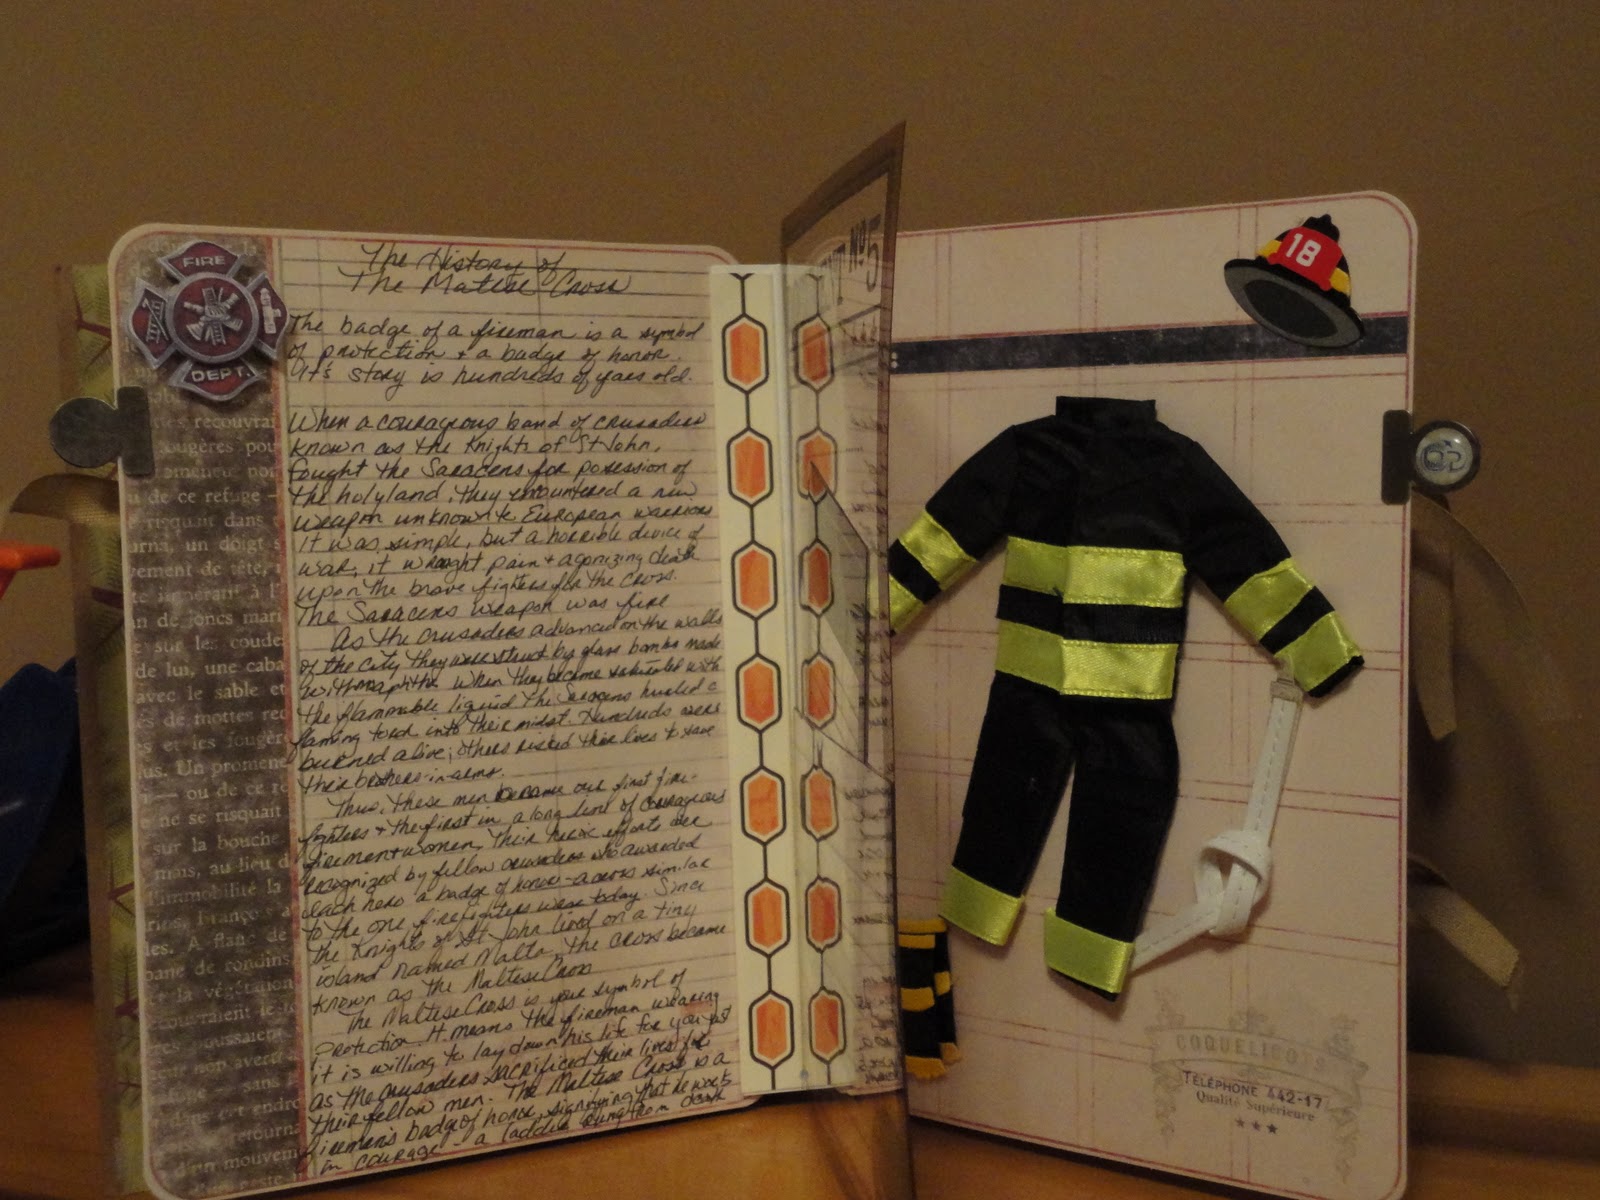 FIRE
DEPT.
The History of
The Maltese Cross
The badge of a fireman is a symbol
of protection + a badge of honor.
It's story is hundreds of years old.
When a courageous band of crusaders
known as the Knights of St John,
fought the Saracens for posession of
the holyland, they encountered a new
weapon unknown to European warriors
it was simple, but a horrible device of
war, it wrought pain + agonizing death
upon the brave fighters for the cross.
The Saracens weapon was fire
As the crusaders advanced on the walls
of the city they were struck by glass bombs made
with naphtha when they became saturated with
the flammable liquid the Saracens hurled a
flaming torch into their midst. Hundreds were
burned alive; others risked their lives to save
their brothers-in-arms.
Thus, these men became our first fire-
fighters + the first in a long line of courageous
firemen + women. Their heroic efforts were
recognized by fellow crusaders who awarded
each hero a badge of honor - a cross similar
to the one firefighters wear today. Since
the Knights of St John lived on a tiny
island named Malta, the cross became
known as the Maltese Cross
The Maltese Cross is your symbol of
protection. It means the fireman wearing
it is willing to lay down his life for you just
as the crusaders sacrificed their lives for
their fellow men. The Maltese Cross is a
fireman's badge of honor, signifying that he works
in courage - a ladder rung from death
recouvrai
fougères pou
de ce refuge —
risquait dans
un doigt s
vement de tête,
de joncs mari
sur les coude
de lui, une caba
avec le sable et
de mottes
et les fougèr
Un promene
— ou de ce
ne se risquait
sur la bouche
mais, au lieu d
l'immobilité la
A flanc de
de rondins
la végétation
d'un mouvem
Nº5
18
COQUELICOTS
TÉLÉPHONE 442-17
Qualité Supérieure